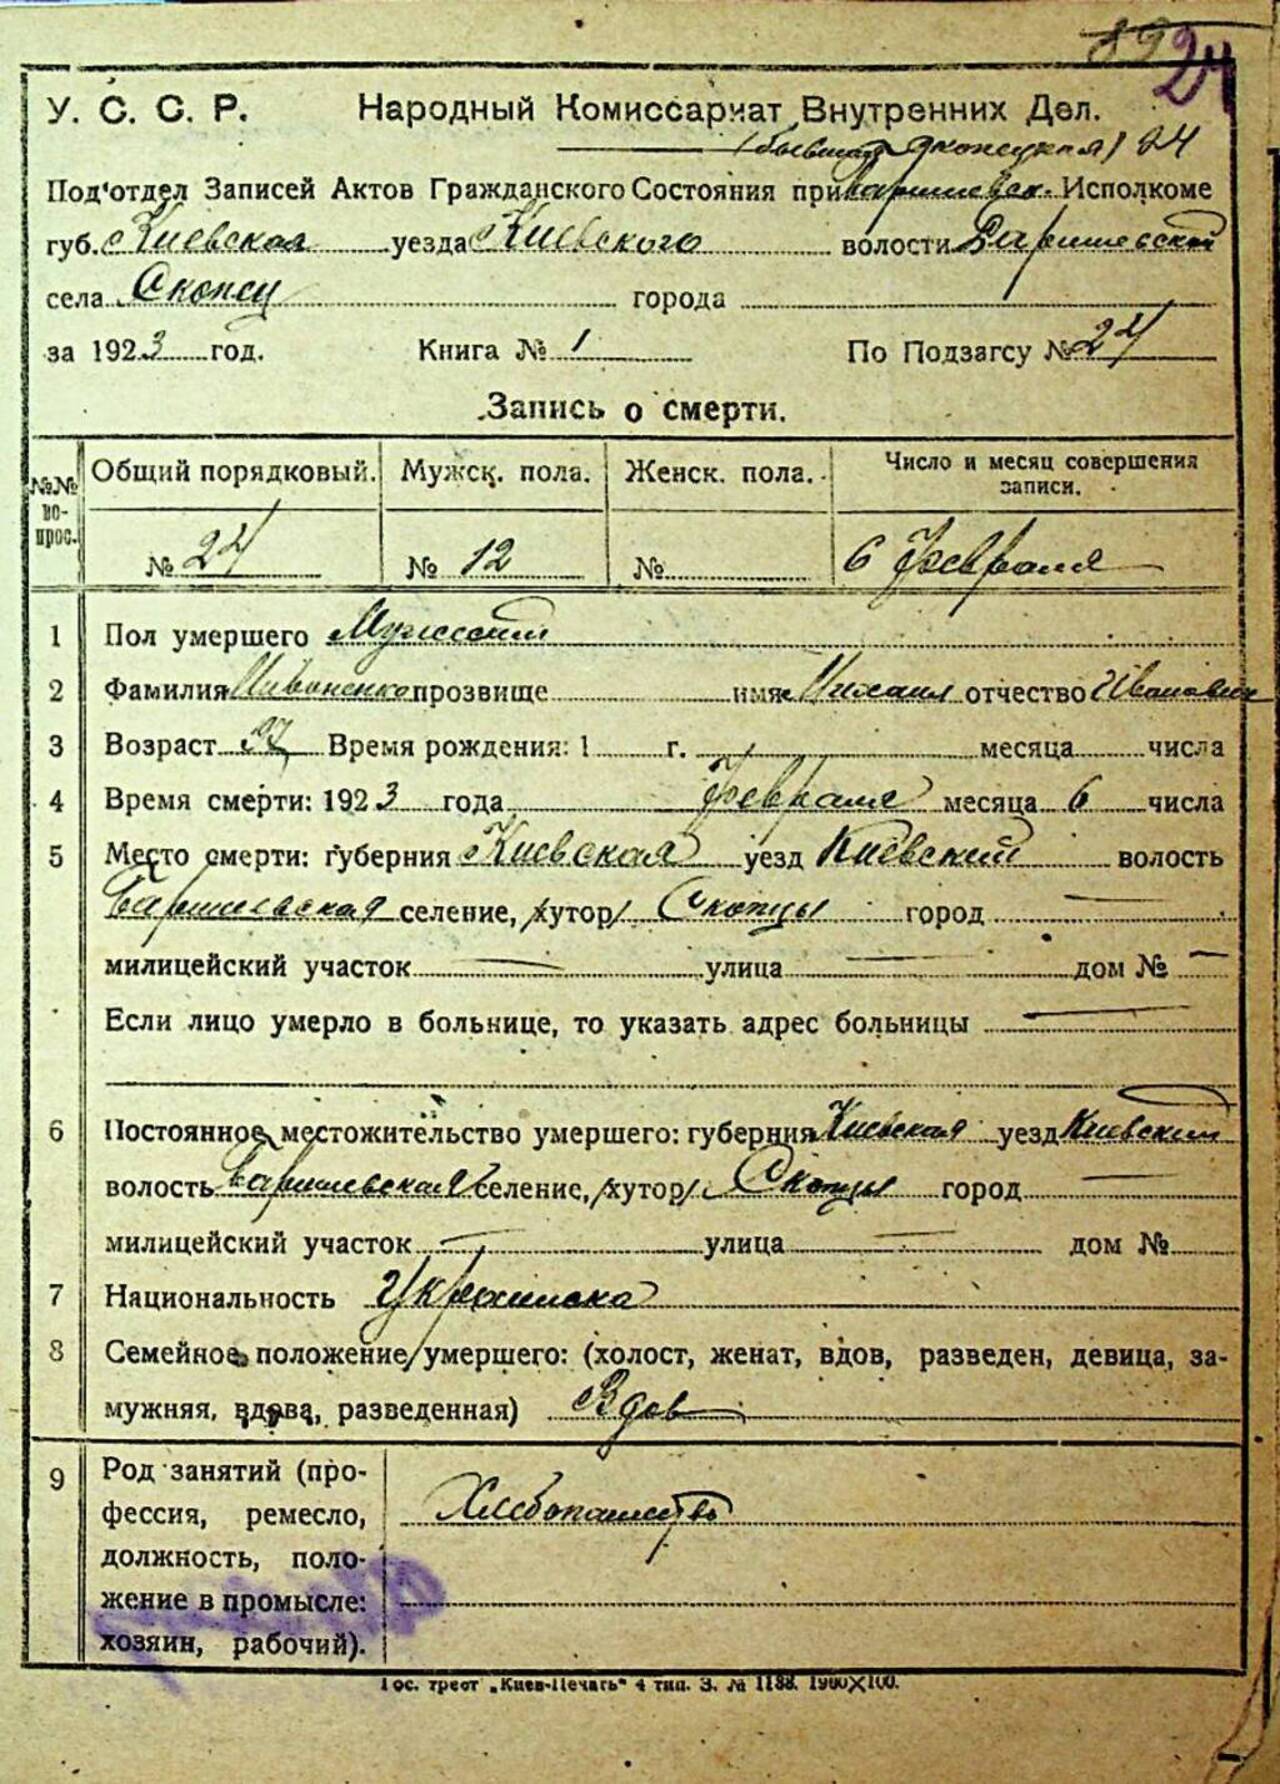 24
У. С. С. Р. Народный Комиссариат Внутренних Дел.
(бывшая Скопецкая) 24
Под'отдел Записей Актов Гражданского Состояния при Баришевск. Исполкоме
губ. Киевская уезда Киевского волости Баришевской
села Скопец города
за 1923 год. Книга № 1 По Подзагсу № 24
Запись о смерти.
№№ вопрос. Общий порядковый. Мужск. пола. Женск. пола. Число и месяц совершения записи.
№ 24 № 12 № 6 Февраля
1 Пол умершего Мужеский
2 Фамилия прозвище имя Михаил отчество Иванович
3 Возраст Время рождения: 1 г. месяца числа
4 Время смерти: 1923 года Февраля месяца 6 числа
5 Место смерти: губерния Киевская уезд Киевский волость
Баришевская селение, /хутор/ Скопцы город —
милицейский участок — улица — дом № —
Если лицо умерло в больнице, то указать адрес больницы —
6 Постоянное местожительство умершего: губерния Киевская уезд Киевский
волость Баришевская селение, /хутор/ Скопцы город —
милицейский участок — улица — дом №
7 Национальность Украинска
8 Семейное положение умершего: (холост, женат, вдов, разведен, девица, за-
мужняя, вдова, разведенная) Вдов
9 Род занятий (про-
фессия, ремесло, Хлебопашество
должность, поло-
жение в промысле:
хозяин, рабочий).
Гос. трест „Киев-Печать" 4 тип. З. № 1188. 1900×100.